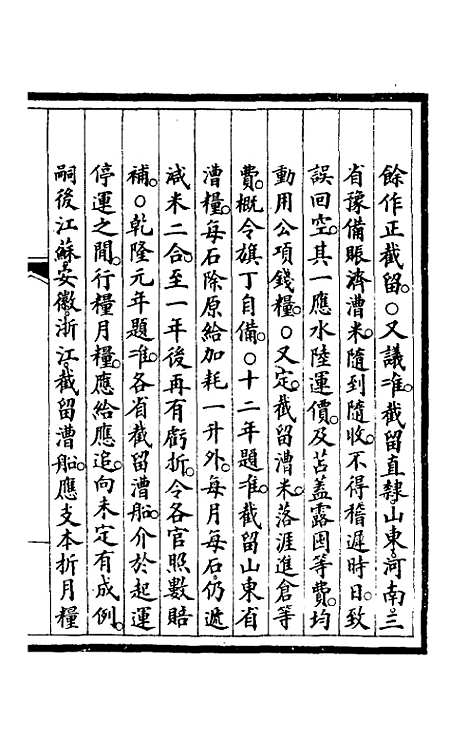 餘作正截留。○又議准。截留直隸。山東。河南。三
省豫備賑濟漕米。隨到隨收。不得稽遲時日。致
誤回空。其一應水陸運價。及苫蓋露囤。等費。均
動用公項錢糧。○又定。截留漕米。落涯進倉等
費。概令旗丁自備。○十二年題准。截留山東省
漕糧。每石除原給加耗一升外。每月每石。仍遞
減米二合。至一年後再有虧折。令各官照數賠
補。○乾隆元年題准。各省截留漕船。介於起運
停運之閒。行糧月糧。應給應追。向未定有成例。
嗣後江蘇。安徽。浙江。截留漕船。應支本折月糧